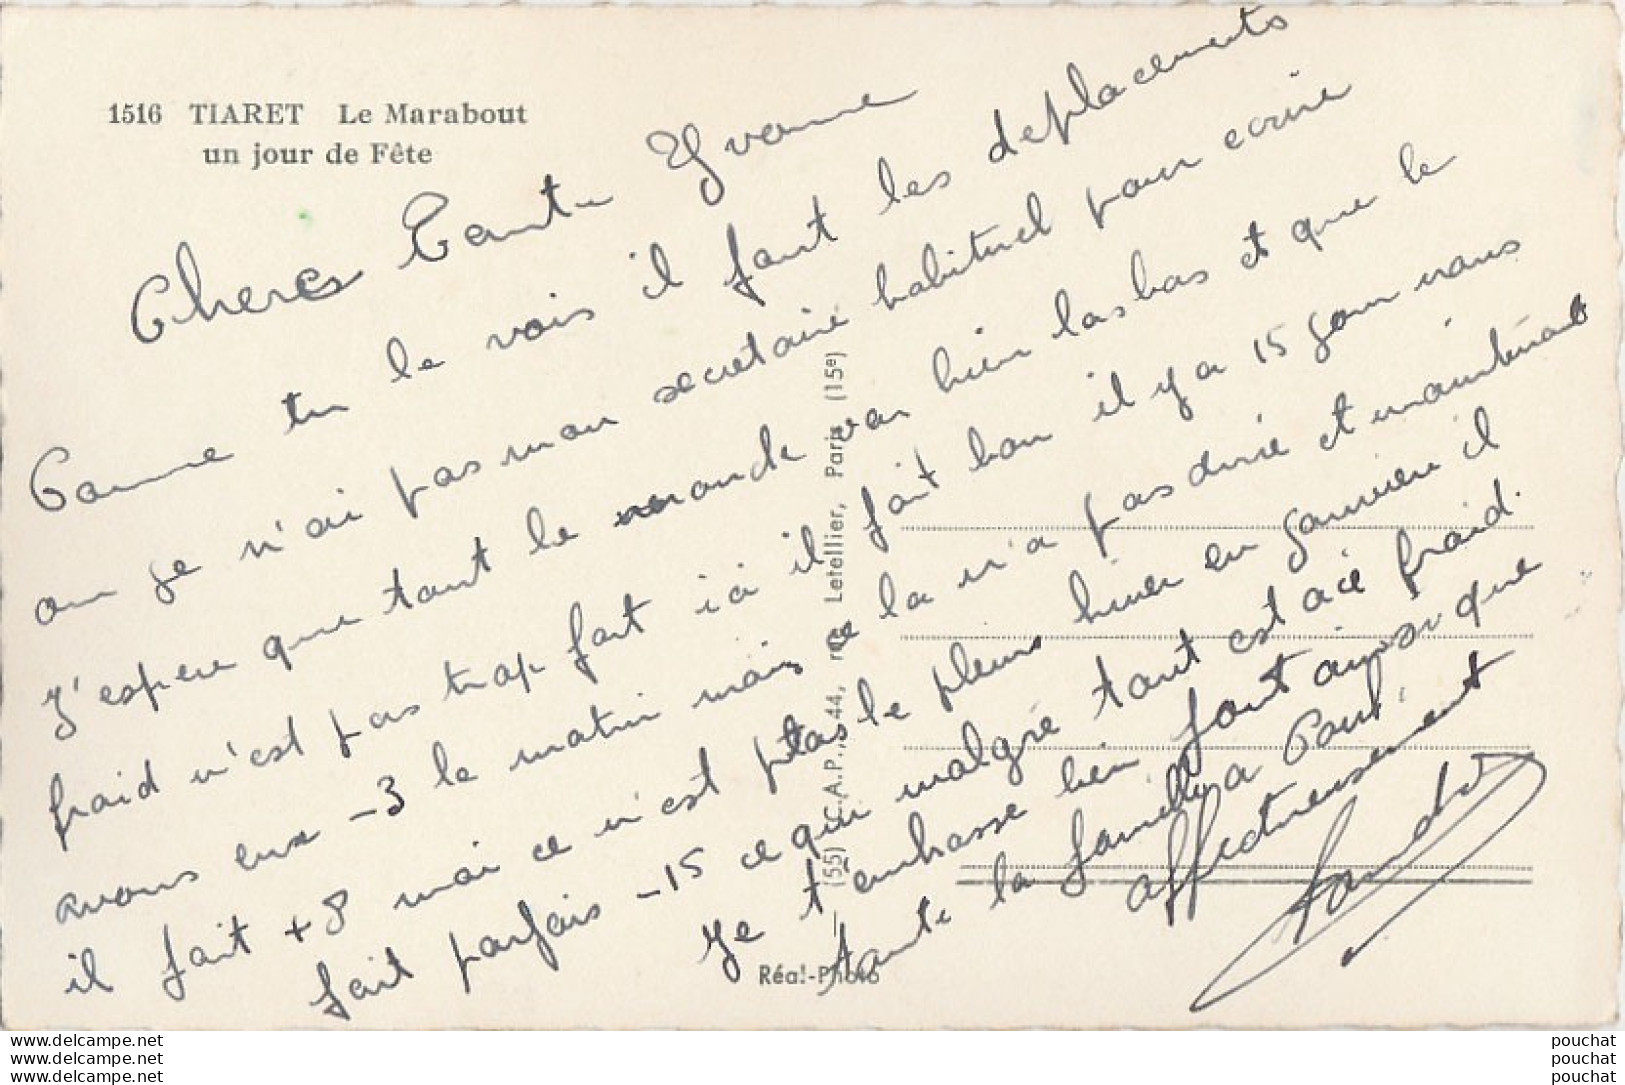 1516 TIARET Le Marabout
un jour de Fête
Chere Tante Yvonne
Comme tu le vois il faut les deplacements
ou je n'ai pas mon secretaire habituel pour ecrire
J'espere que tout le monde va bien las bas et que le
froid n'est pas trop fort ici il fait bon il y a 15 jour nous
avons eux -3 le matin mais ce la n'a pas duré et maintenant
il fait +8 mai ce n'est pas le pleins hiver en janvier il
fait parfois -15 ce qui malgré tout est acé froid.
Je t'embrasse bien fort ainsi que
toute la famille a Paul.
affectueusement
(55) C.A.P., 44, rue Letellier, Paris (15e)
Réal-Photo
www.delcampe.net
www.delcampe.net
www.delcampe.net
pouchat
pouchat
pouchat